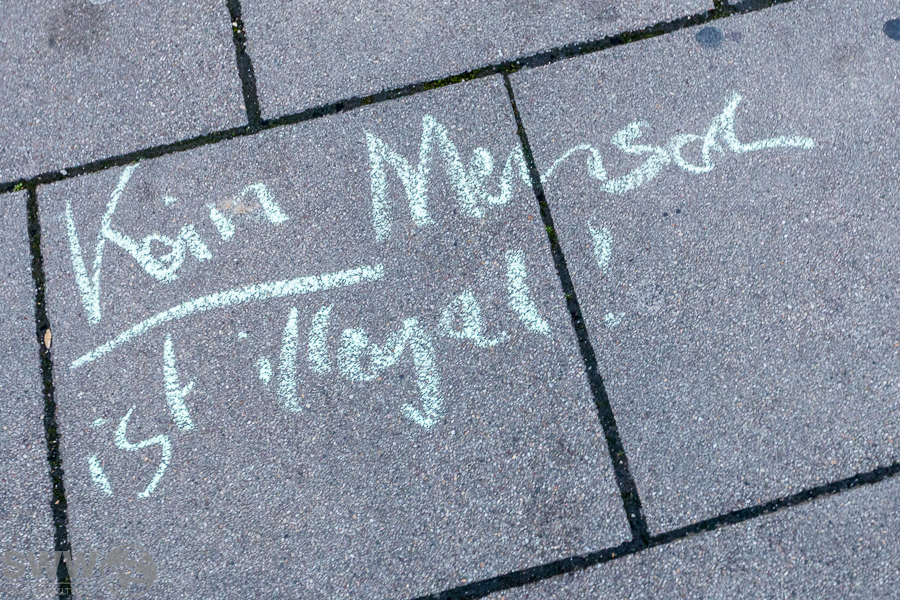 Kein Mensch
ist illegal!